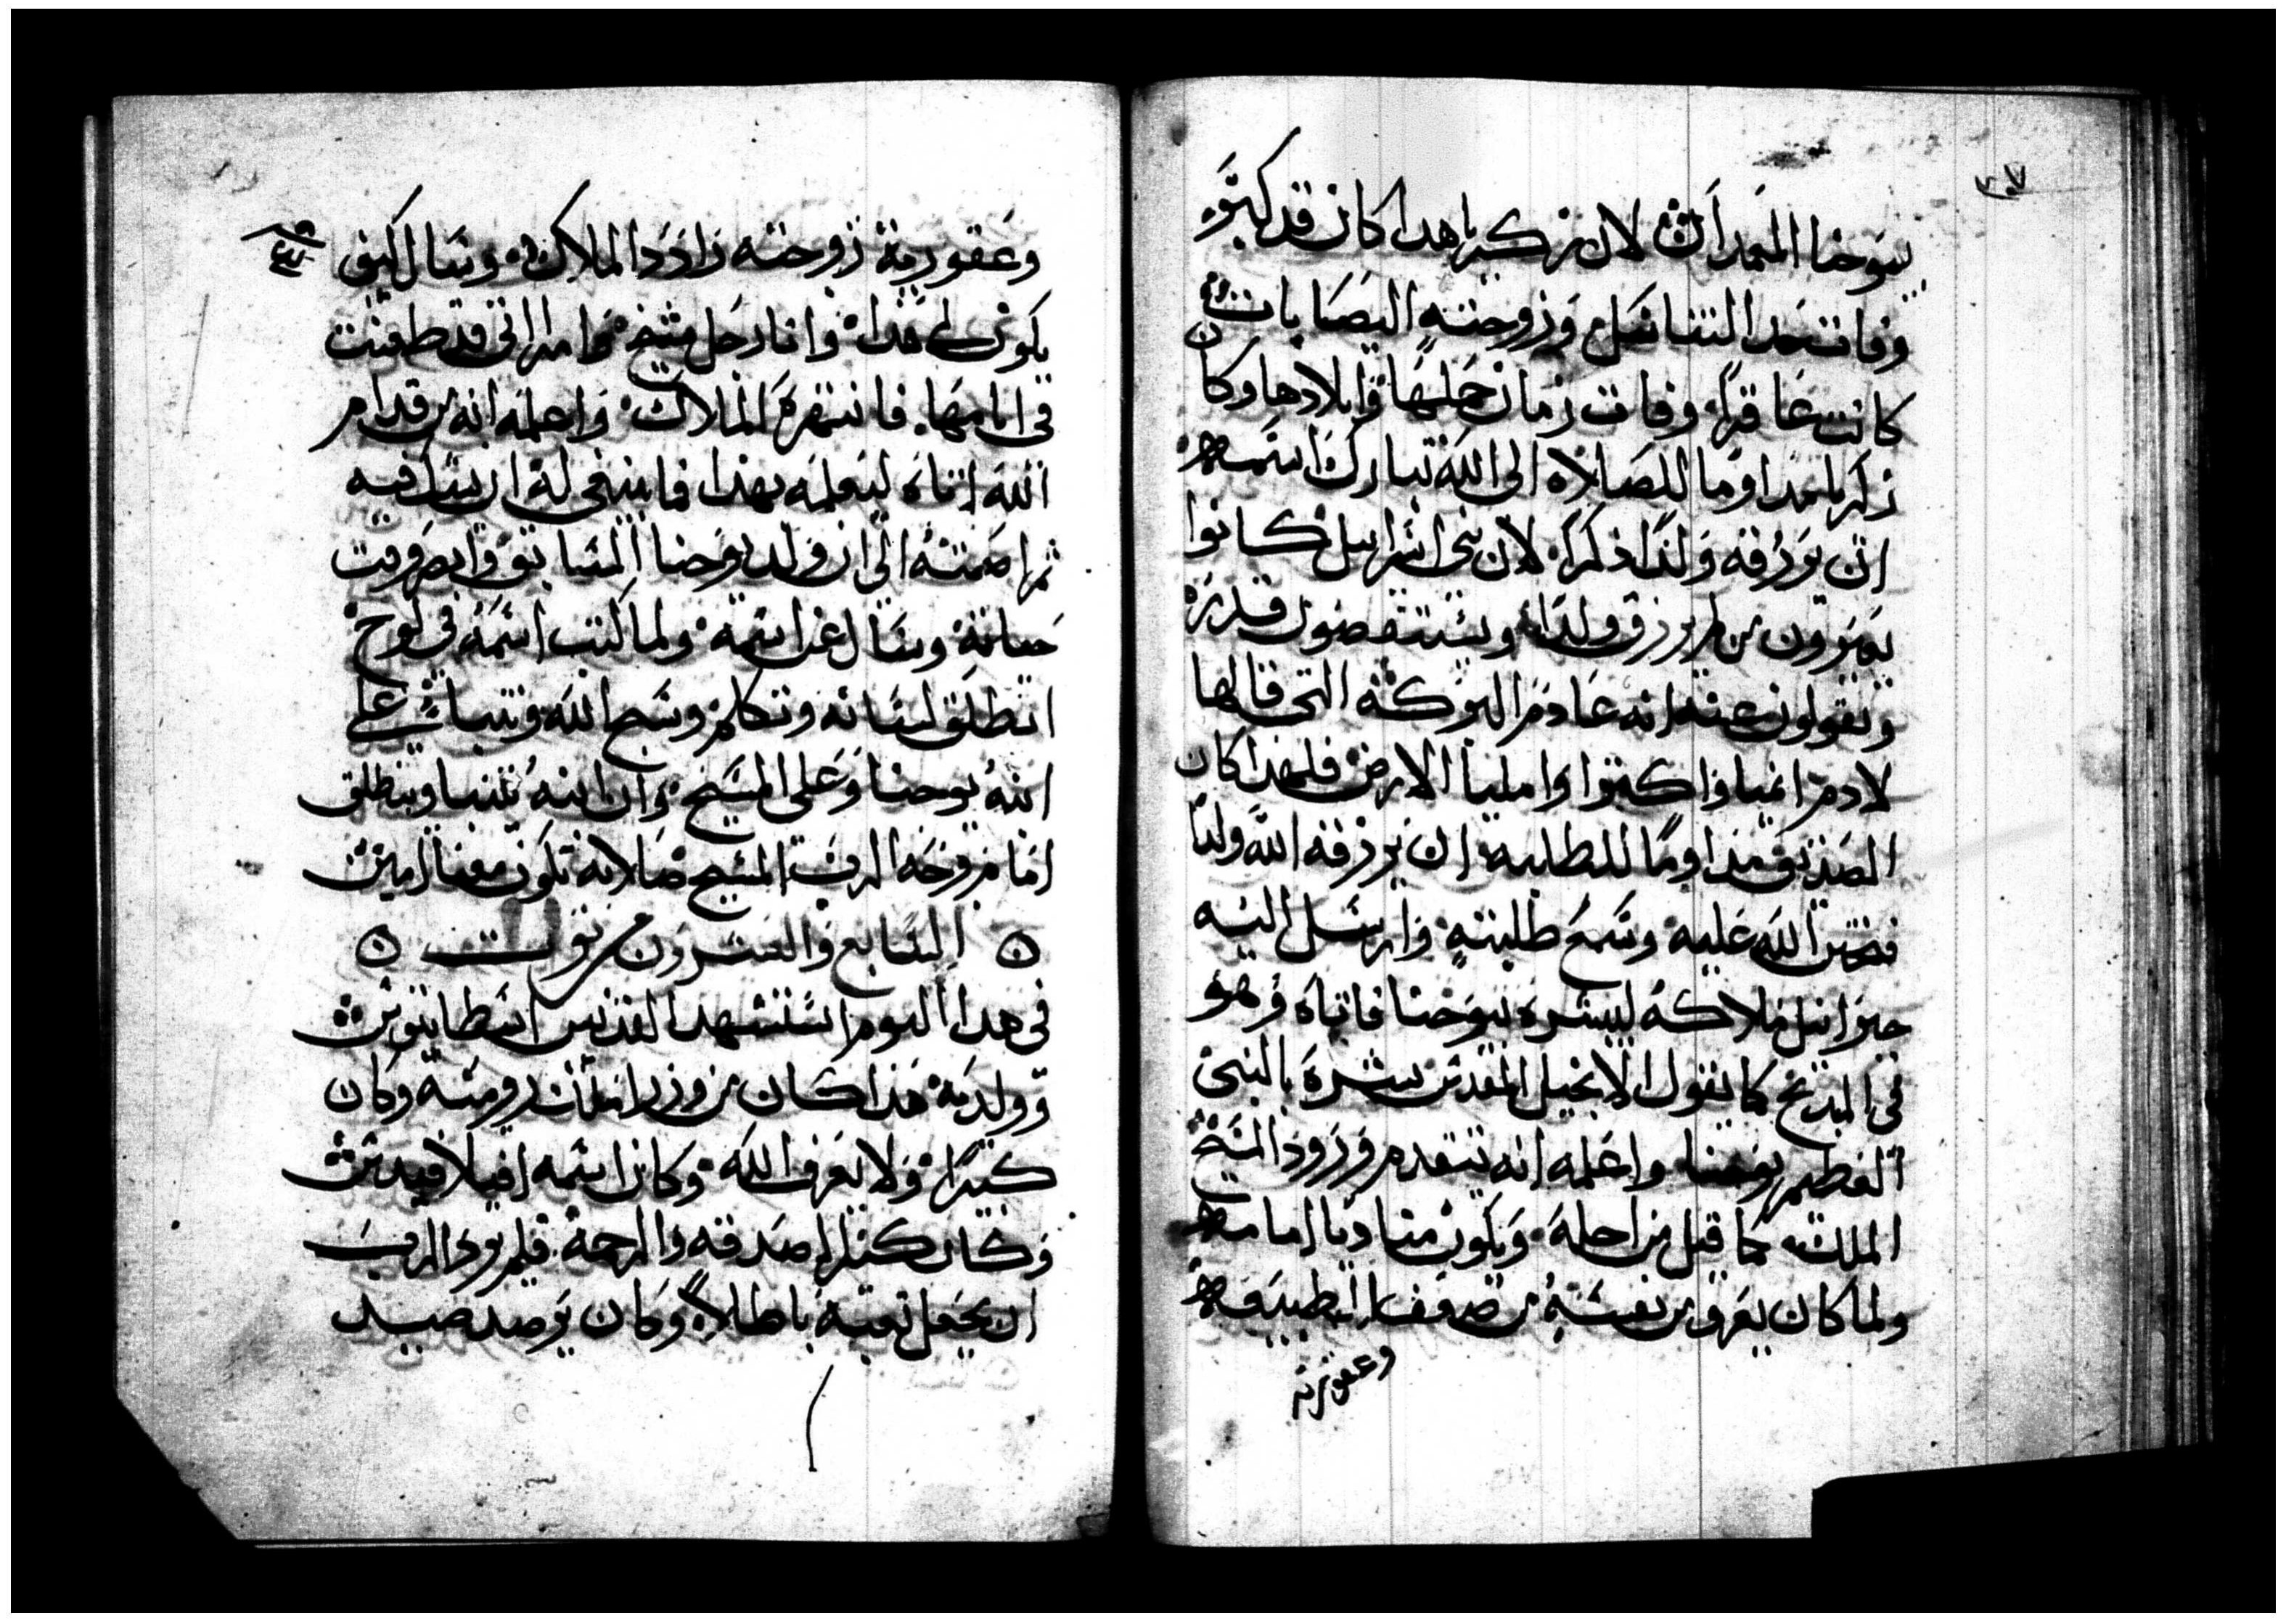 بيوحنا المعمدان لان زكريا هدا كان قد كبر
وفات حد التناسل وزوجته اليصابات
كانت عاقرا وفات زمان حملها وايلادها وكان
زكريا مداوما للصلاه الى الله تبارك اسمه
ان يرزقه ولدا ذكرا لان بنى اسراييل كانوا
يعيرون من لم يرزق ولدا ويستنقصون قدره
ويقولون عنه انه عادم البركه التى قالها
لادم انميا واكتروا واملیا الارض فلهدا كان
الصديق مداوما للطلبه ان يرزقه الله ولدا
فتحنن الله عليه وسمع طلبته وارسل اليه
جبراييل ملاكه ليبشره بيوحنا فاتاه وهو
فى المدبح كما يقول الانجيل المقدس بشره بالنبى
العظيم يوحنا واعلمه انه يتقدم ورود المسيح
الملك كما قيل من اجله ويكون مناديا امامه
ولما كان يعرف من نفسه من ضعف الطبيعه
وعقوريه
وعقورية زوجته رادد الملاك وقال كيف
يكون لى هدا وانا رجل شيخ وامراتى قد طعنت
فى ايامها فانتهره الملاك واعلمه انه من قدام
الله اتاه ليعلمه بهدا فما ينبغى له ان يشك فيه
ثم اصمته الى ان ولد يوحنا السابق وابصروقت
ختانه وسال عن اسمه ولما كتب اسمه فى لوح
انطلق لسانه وتكلم وسبح الله وتنبا على
ابنه يوحنا وعلى المسيح وان ابنه يتنبا وينطلق
امام وجه الرب المسيح صلاته تكون معنا امين
السابع والعشرون من توت
فى هدا اليوم استشهد القديس اسطاتيوس
وولديه هدا كان من وزرا مملكة روميه وكان
كبيرا ولا يعرف الله وكان اسمه افيلاقيدس
وكان كتير الصدقه والرحمة فلم يرد الرب
ان يجعل تعبه باطلا وكان يرصد صيد